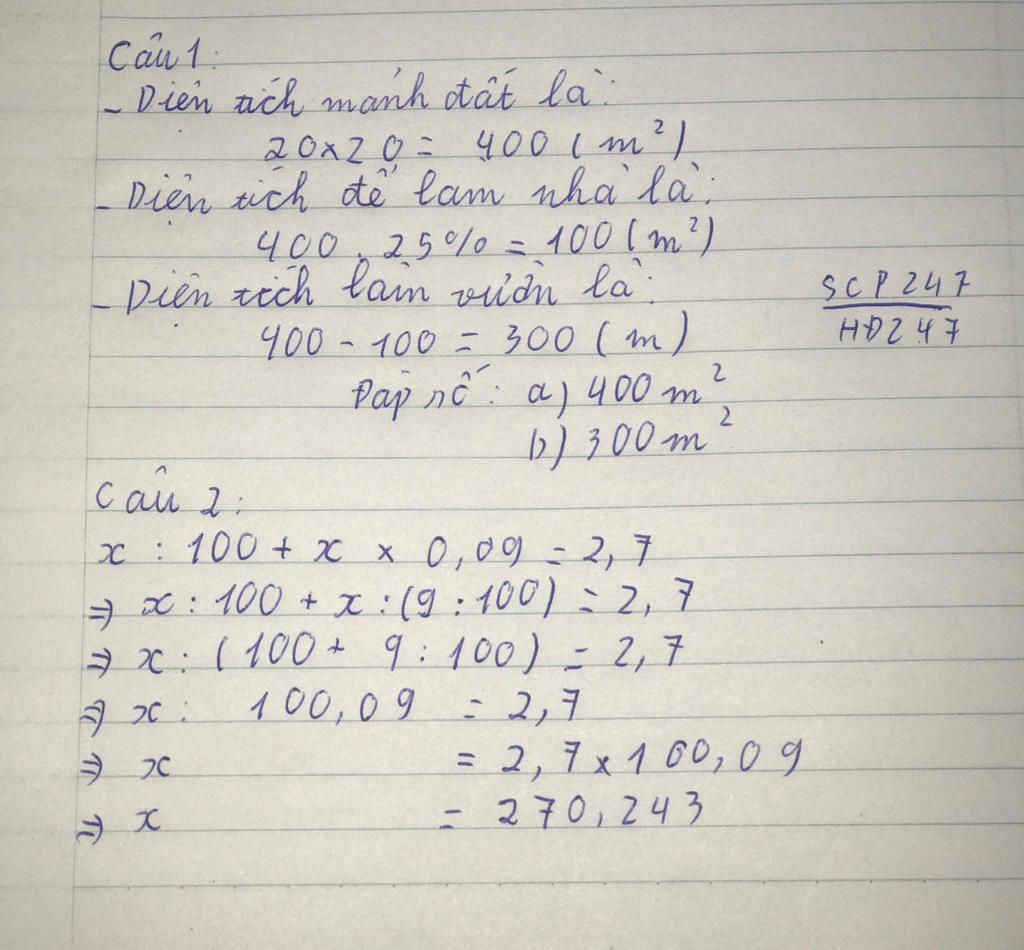 Câu 1:
- Diện tích mảnh đất là:
20 x 20 = 400 ( m²)
- Diện tích để làm nhà là:
400 . 25% = 100 ( m²)
- Diện tích làm vườn là:
400 - 100 = 300 ( m )
Đáp số: a) 400 m²
b) 300 m²
SCP247
HĐ247
Câu 2:
x : 100 + x × 0,09 = 2,7
⇒ x : 100 + x : (9 : 100) = 2,7
⇒ x : (100 + 9 : 100) = 2,7
⇒ x : 100,09 = 2,7
⇒ x = 2,7 x 100,09
⇒ x = 270,243